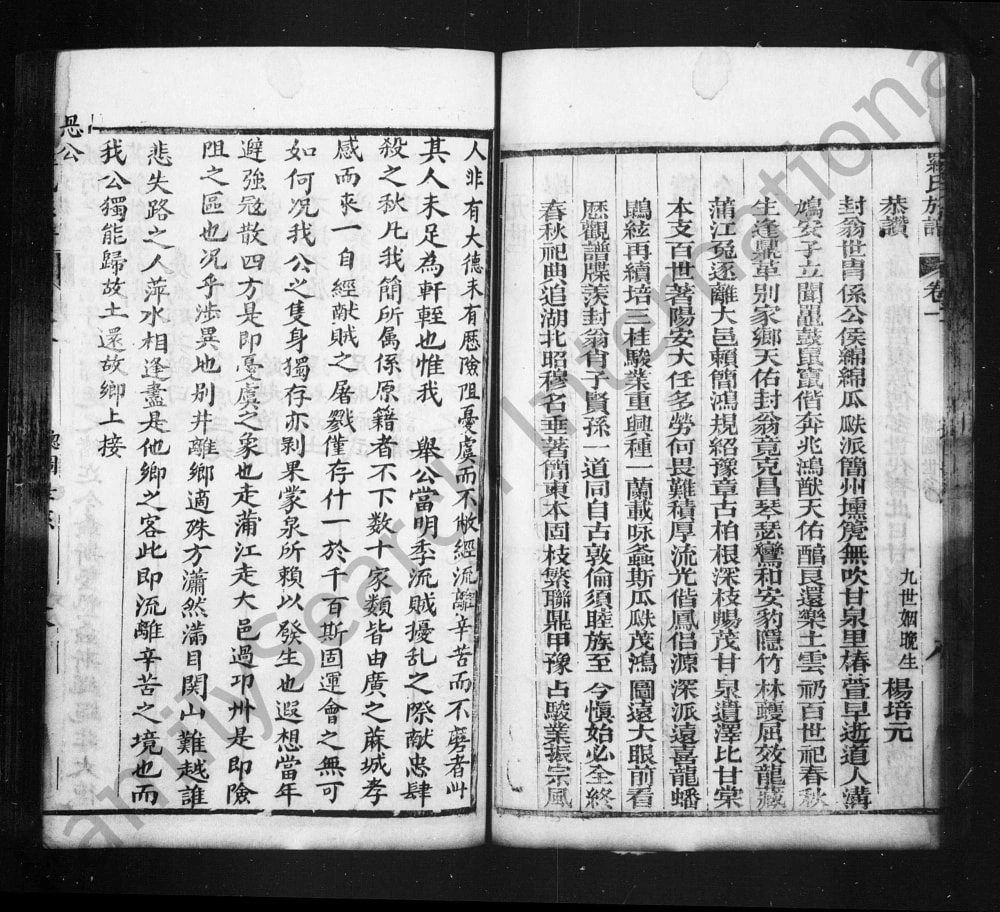 羅氏族譜 卷一
恭讚
九世姻晚生 楊培元
封翁世冑係公侯綿綿瓜瓞派簡州壎箎無吹甘泉里椿萱早逝道人溝
鳩安子立聞鼍鼓鼠竄偕奔兆鴻猷天佑酳艮還樂土雲礽百世祀春秋
生逢鼎革別家鄉天佑封翁竟克昌琴瑟鸞和安豹隱竹林蠖屈效龍藏
蒲江兔逐離大邑賴簡鴻規紹豫章古柏根深枝暢茂甘泉遺澤比甘棠
本支百世著陽安大任多勞何畏難積厚流光偕鳳侶源深派遠喜龍蟠
鵾絃再續培三桂駿業重興種一蘭載咏螽斯瓜瓞茂鴻圖遠大眼前看
歷觀譜牒羨封翁肖子賢孫一道同自古敦倫須睦族至今愼始必全終
春秋祀典追湖北昭穆名垂著簡東本固枝繁聯鼎甲豫占駿業振宗風
人非有大德未有歷險阻憂虞而不敝經流離辛苦而不磨者此
其人未足為軒輊也惟我 舉公當明季流賊擾乱之際献忠肆
殺之秋凡我簡所属係原籍者不下数十家類皆由廣之蔴城孝
感而来一自經献賊之屠戮僅存什一於千百斯固運會之無可
如何况我公之隻身獨存亦剥果蒙泉所賴以發生也遐想當年
避強冦散四方是即憂虞之象也走蒲江走大邑過卭卅是即險
阻之區也况乎涉異地别井離鄉適殊方瀟然滿目関山難越誰
悲失路之人萍水相逢盡是他鄉之客此即流離辛苦之境也而
我公獨能歸故土還故鄉上接
公